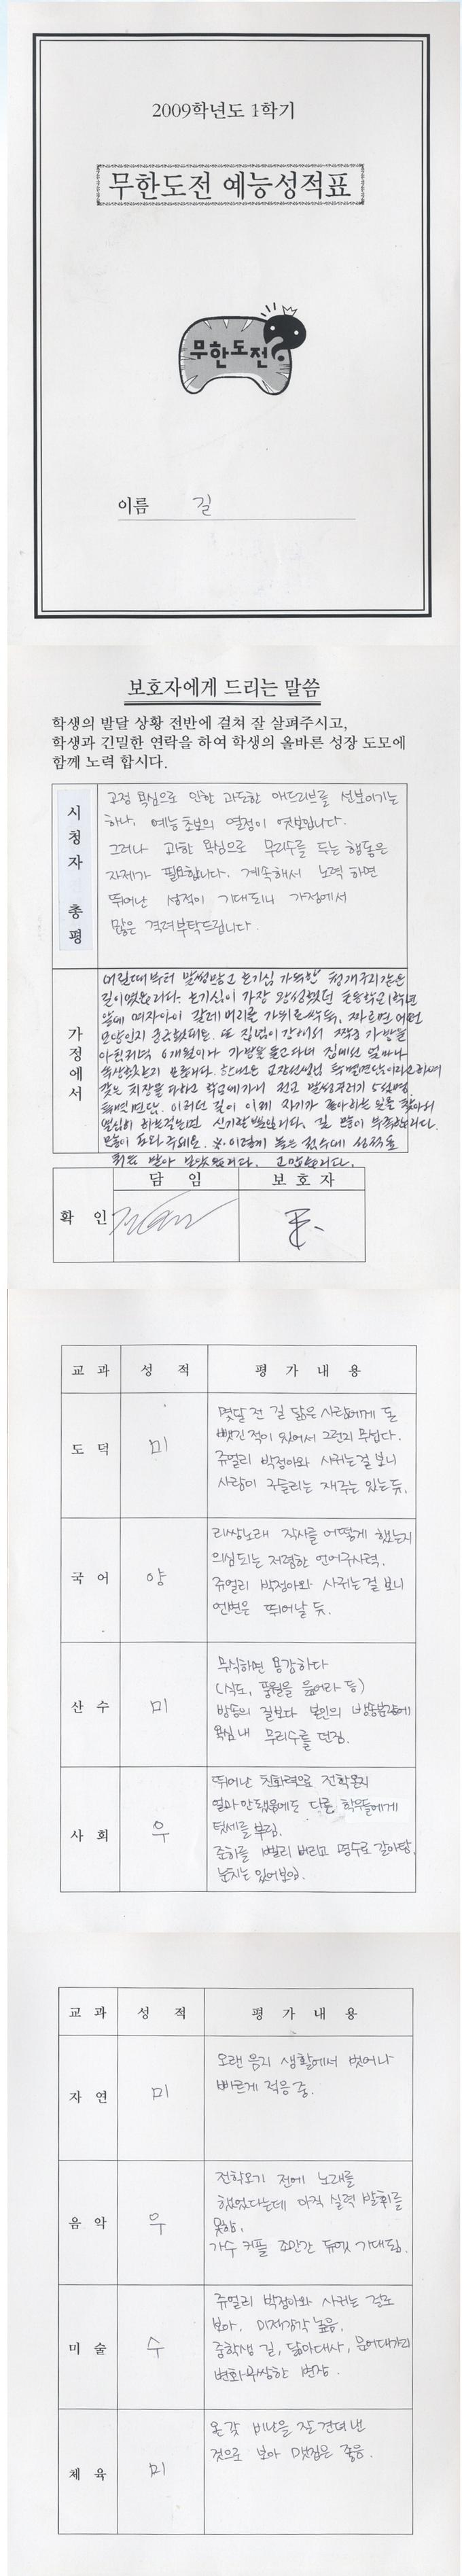 2009학년도 1학기
무한도전 예능성적표
무한도전?
이름 길
보호자에게 드리는 말씀
학생의 발달 상황 전반에 걸쳐 잘 살펴주시고,
학생과 긴밀한 연락을 하여 학생의 올바른 성장 도모에
함께 노력 합시다.
시청자 총평
고정 욕심으로 인한 과도한 애드리브를 선보이기는
하나, 예능초보의 열정이 엿보입니다.
그러나 과한 욕심으로 무리수를 두는 행동은
자제가 필요합니다. 계속해서 노력 하면
뛰어난 성적이 기대되니 가정에서
많은 격려부탁드립니다.
가정에서
어릴때부터 말썽많고 호기심 가득한 청개구리같은
길이였습니다. 호기심이 가장 왕성했던 초등학교1학년
앞에 여자아이 갈래머리를 가위로싹둑, 자르면 어떤
모양인지 궁금했대요. 또 집념이 강해서 짝궁 가방을
6개월이나 가방을 들고다녀 집에선 얼마나
속상했는지 모릅니다. 한번은 교장선생님 특별면담이라고하여
갖은 치장을 다하고 학교에가니 전교 말썽꾸러기 5명
특별면담. 이러던 길이 이제 자기가 좋아하는 일을 찾아서
열심히 하는걸보면 신기할뿐입니다. 길 많이 부족합니다.
많이 도와주세요. ※. 이렇게 높은 점수에 성적을
처음 받아 보았습니다. 고맙습니다.
담 임 보 호 자
확 인
교 과 성 적 평 가 내 용
도 덕 미
몇달 전 길 닮은 사람에게 돈
뺏긴적이 있어서 그런지 무섭다.
쥬얼리 박정아와 사귀는걸 보니
사람이 구슬리는 재주는 있는듯.
국 어 양
리쌍노래 작사를 어떻게 했는지
의심되는 저렴한 언어구사력.
쥬얼리 박정아와 사귀는걸 보니
언변은 뛰어날 듯.
산 수 미
무식하면 용감하다
(식도, 풍월을 읊어라 등)
방송의 질보다 본인의 방송분량에
욕심내 무리수를 던짐.
사 회 우
뛰어난 친화력으로 전학온지
얼마 안됐음에도 다른 학우들에게
텃세를 부림.
준하를 빨리 버리고 명수로 갈아탐,
눈치는 있어보임.
교 과 성 적 평 가 내 용
자 연 미
오랜 음지 생활에서 벗어나
빠르게 적응 중.
음 악 우
전학오기 전에 노래를
했었다는데 아직 실력 발휘를
못함.
가수 커플 조만간 듀엣 기대됨.
미 술 수
쥬얼리 박정아와 사귀는 걸로
보아, 미적감각 높음.
중학생 길, 달마대사, 문어대가리
변화무쌍한 변장.
체 육 미
온갖 비난을 잘 견뎌 낸
것으로 보아 맷집은 좋음.